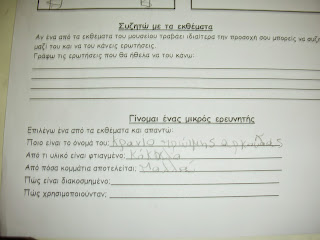 Συζητώ με τα εκθέματα
Αν ένα από τα εκθέματα του μουσείου τραβάει ιδιαίτερα την προσοχή σου μπορείς να συζη
μαζί του και να του κάνεις ερωτήσεις.
Γράφω τις ερωτήσεις που θα ήθελα να του κάνω:
Γίνομαι ένας μικρός ερευνητής
Επιλέγω ένα από τα εκθέματα και απαντώ:
Ποιο είναι το όνομά του: Κρανίο αρκούδας
Από τι υλικό είναι φτιαγμένο: Κόκκαλο
Από πόσα κομμάτια αποτελείται: Πολλά
Πώς είναι διακοσμημένο:
Πώς χρησιμοποιούνταν: